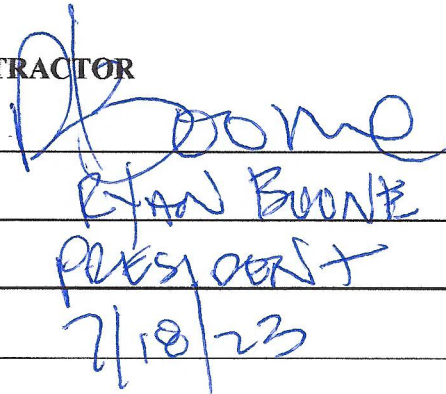 TRACTOR
RBoone
RYAN BOONE
PRESIDENT
7/18/23